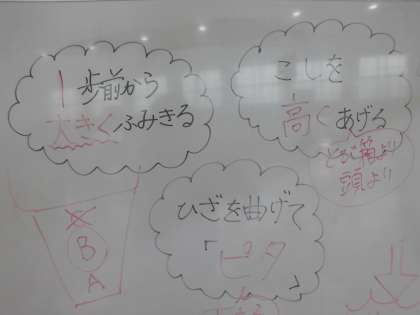 1歩前から
大きくふみきる
こしを
高くあげる
とび箱より
頭より
ひざを曲げて
「ピタ
」
B
A